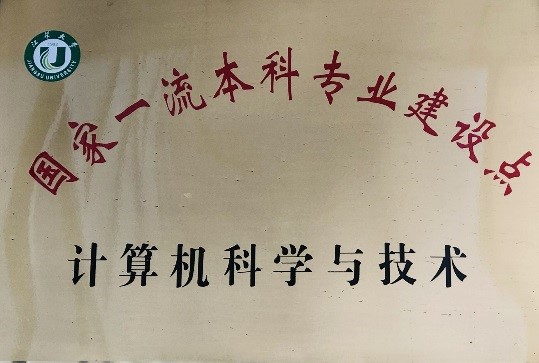 江苏大学
JIANGSU UNIVERSITY
国家一流本科专业建设点
计算机科学与技术